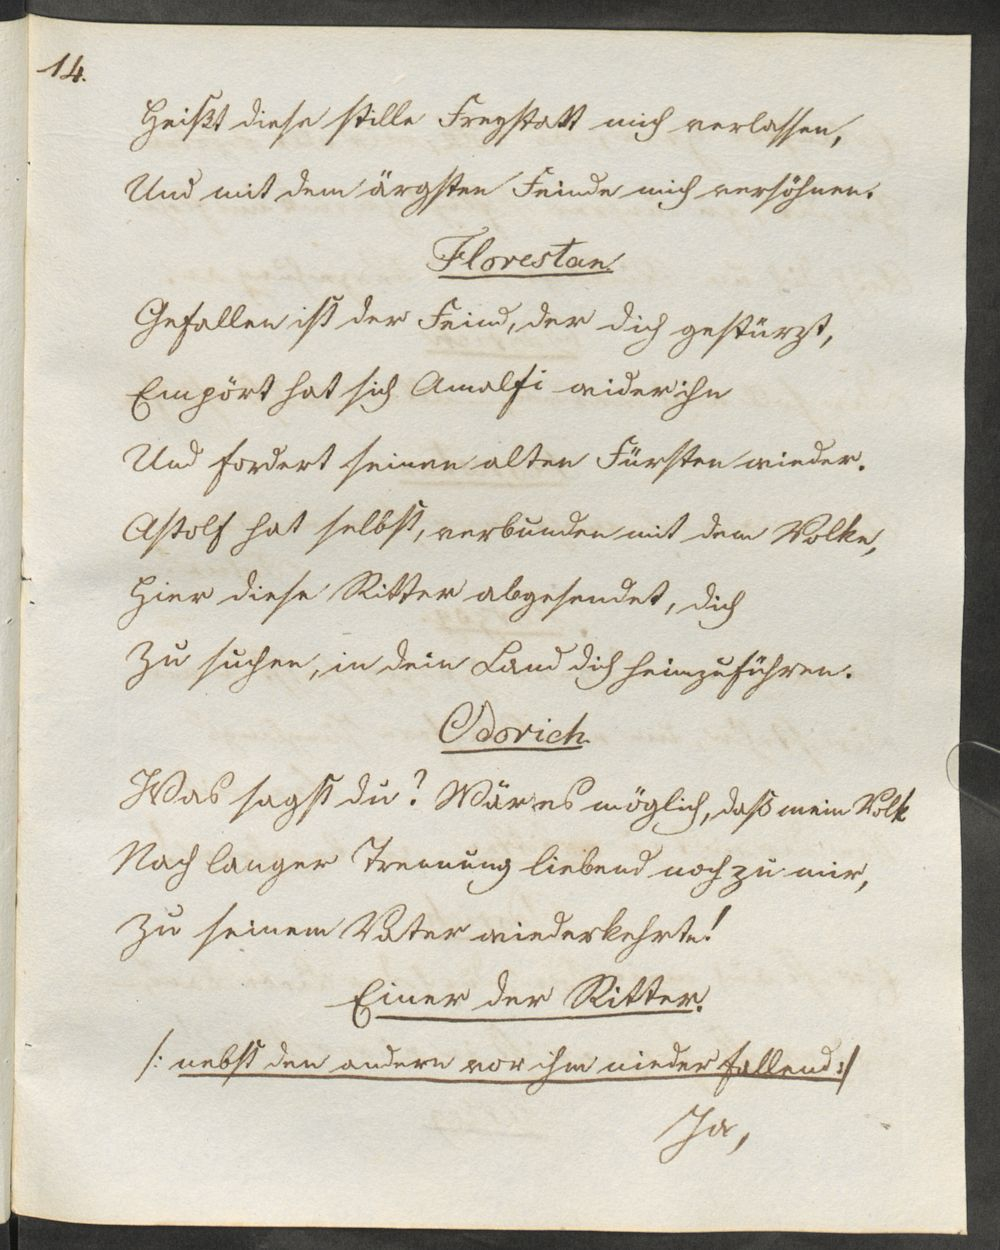 14.
Heißt diese stille Freystatt mich verlassen,
Und mit dem ärgsten Feinde mich versöhnen.
Florestan.
Gefallen ist der Feind, der dich gestürzt,
Empört hat sich Amalfi wider ihn
Und fordert seinen alten Fürsten wieder.
Astolf hat selbst, verbunden mit dem Volke,
Hier diese Ritter abgesendet, dich
Zu suchen, in dein Land dich heimzuführen.
Odorich.
Was sagst du? Wär es möglich, daß mein Volk
Nach langer Trennung liebend noch zu mir,
Zu seinem Vater wiederkehrte!
Einer der Ritter.
/: nebst den andern vor ihm niederfallend :/
Ja,